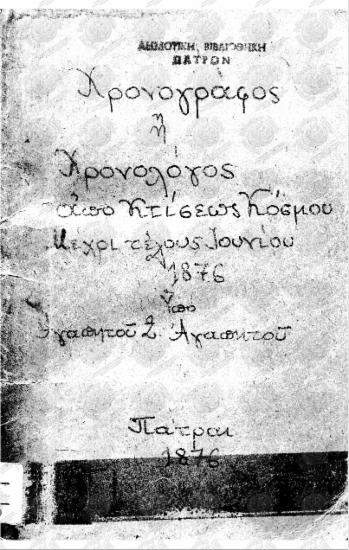 ΔΗΜΟΤΙΚΗ ΒΙΒΛΙΟΘΗΚΗ
ΠΑΤΡΩΝ
Χρονογράφος
ἢ
Χρονολόγος
ἀπὸ Κτίσεως Κόσμου
Μέχρι τέλους Ἰουνίου
1876
ὑπὸ
Ἀγαπητοῦ Σ. Ἀγαπητοῦ
Πάτραι
1876